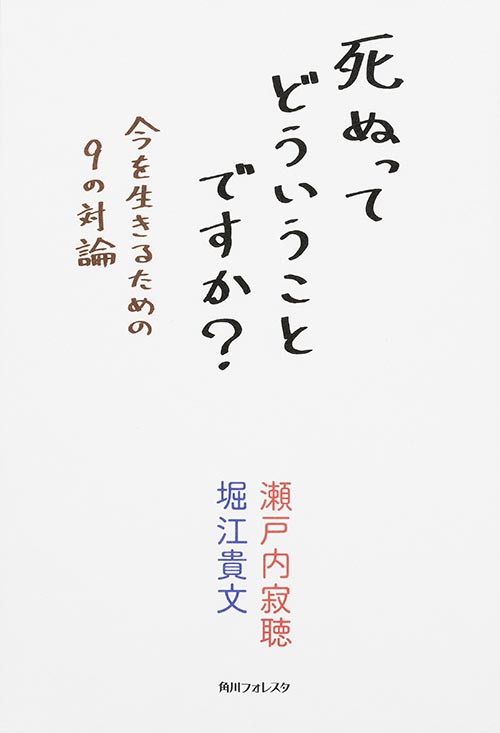 死ぬって
どういうこと
ですか？
今を生きるための
9の対論
瀬戸内寂聴
堀江貴文
角川フォレスタ